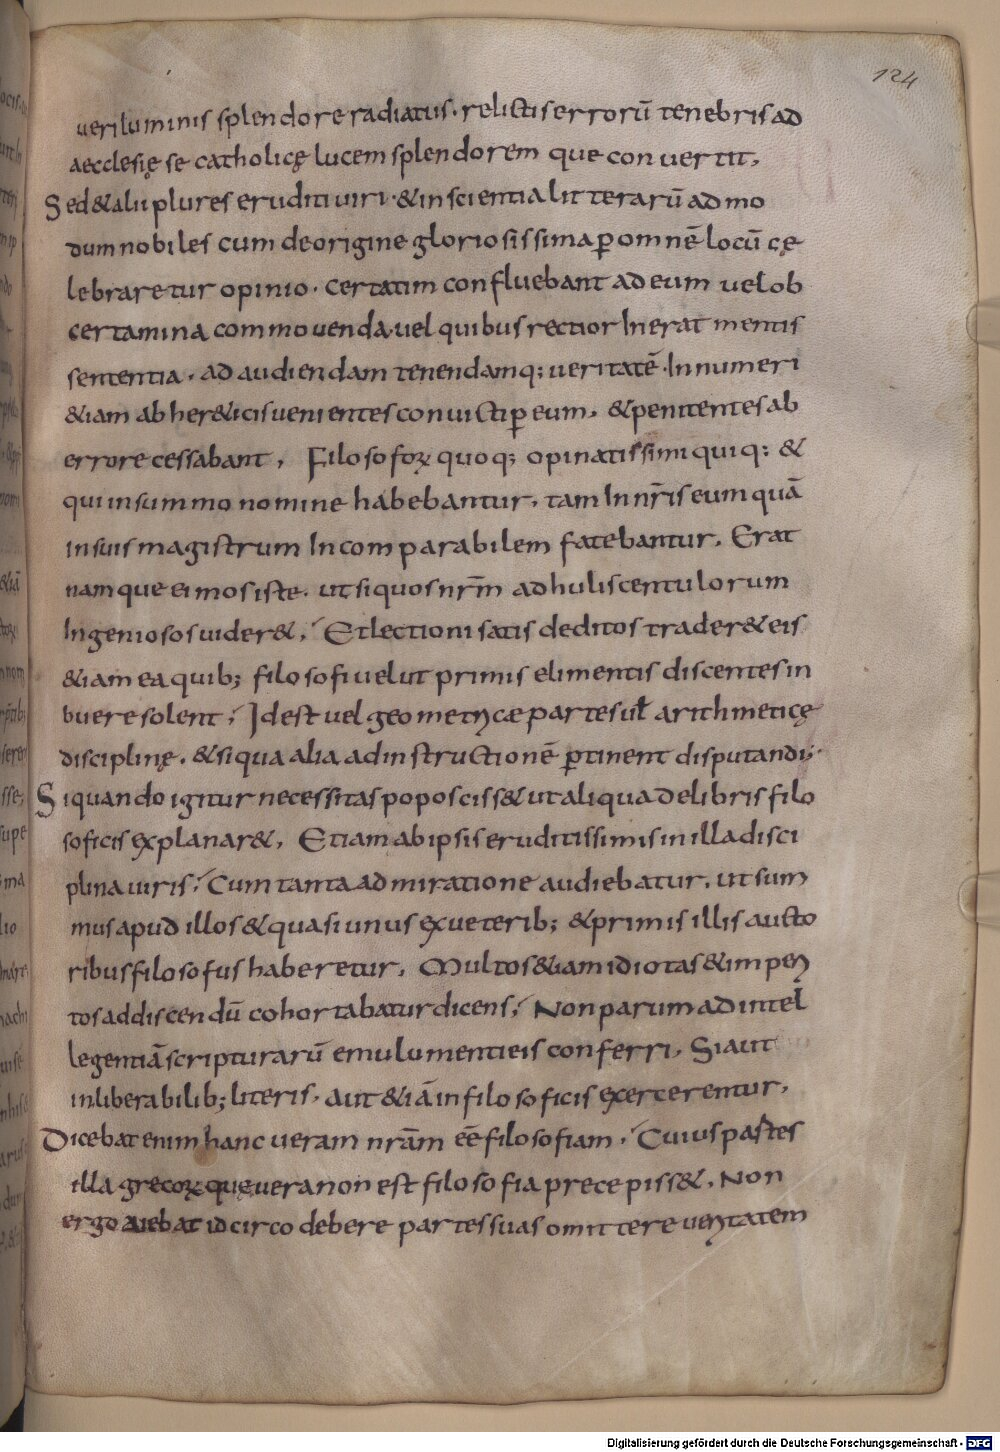 124
ueri luminis splendore radiatus. relictis errorū tenebris ad
aecclesię se catholicę lucem splendorem que conuertit.
Sed & alii plures eruditi uiri. & in scientia litterarū ad mo
dum nobiles cum de origine gloriosissima ꝑ omnē locū cę
lebraretur opinio. certatim confluebant ad eum uel ob
certamina commouenda. uel quibus rectior Inerat mentis
sententia. ad audiendam tenendamq; ueritatē. Innumeri
&iam ab her&icis uenientes conuicti ꝑ eum. & penitentes ab
errore cessabant. Filosofoꝝ quoq; opinatissimi quiq: &
qui in summo nomine habebantur. tam In nr̄is eum quā
in suis magistrum Incomparabilem fatebantur. Erat
namque ei mos iste. ut si quos nr̄m adhuliscentulorum
Ingeniosos uider&; Et lectioni satis deditos trader& eis
&iam ea quib; filosofi uelut primis elimentis discentes in
buere solent; Id est uel geometrycæ partes uł arithmeticę
disciplinę. & si qua alia ad instructionē ꝑtinent disputandi;
Si quando igitur necessitas poposciss& ut aliqua de libris filo
soficis explanar&. Etiam ab ipsis eruditissimis in illa disci
plina uiris; Cum tanta admiratione audiebatur. ut sum
mus apud illos & quasi unus ex ueterib; & primis illis aucto
ribus filosofus haberetur. Multos &iam idiotas & inpery
tos ad discendū cohortabatur dicens; Non parum ad intel
legentiā scripturarū emulumenti eis conferri. Si aut
in liberabilib; literis. aut &iā in filosoficis exercerentur.
Dicebat enim hanc ueram nrām eē filosofiam. Cuius partes
illa grecoꝝ quę uera non est filosofia precepiss&. Non
ergo aiebat idcirco debere partes suas omittere uerytatem
Digitalisierung gefördert durch die Deutsche Forschungsgemeinschaft - DFG